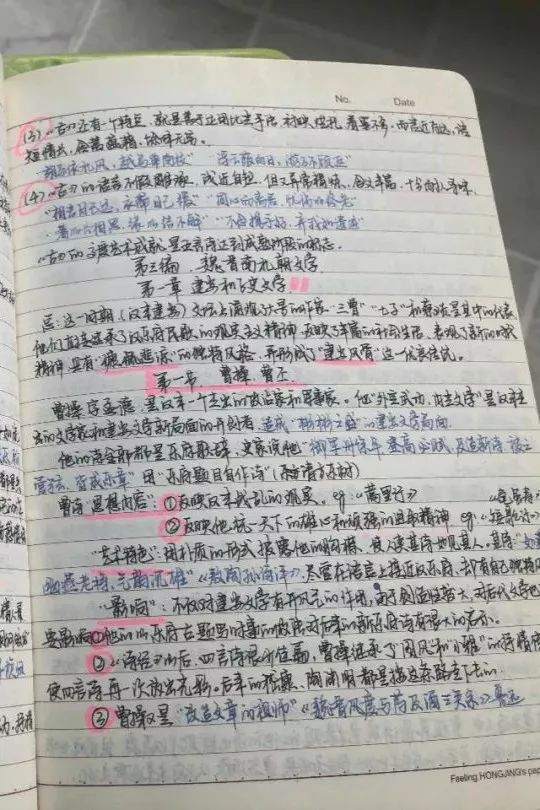 No. Date
(3) "古"还有一个特点,就是善于运用比兴手法,衬映烘托,着墨不多,而言近旨远,语
短情长,含蓄蕴藉,余味无穷。
"胡马依北风,越鸟巢南枝" "浮云蔽白日,游子不顾返"
(4) "古"的语言不假雕琢,浅近自然,但又异常精炼,含义丰富,十分耐人寻味.
"相去日已远,衣带日已缓" "同心而离居,忧伤以终老"
"著以长相思,缘以结不解" "不念携手好,弃我如遗迹"
"古"的高度艺术成就是五言诗达到成熟阶段的标志。
第三编 魏晋南北朝文学
第一章 建安和正始文学
这一时期(汉末建安)文坛上涌现了大量的作家."三曹" "七子"和蔡琰是其中的代表
他们直接继承了汉乐府民歌的现实主义精神,反映了丰富的社会生活,表现了新的时代
精神,具有"慷慨悲凉"的独特风格,并形成了"建安风骨"这一优良传统。
第一节 曹操、曹丕
曹操字孟德,是汉末一个杰出的政治家和军事家。他"外定武功,内兴文学"是汉末杰
出的文学家和建安文学新局面的开创者,造成"彬彬之盛"的建安文学局面.
他的诗全部都是乐府歌辞,史家说他"御军卅余年,登高必赋,及造新诗,被之
管弦,皆成乐章" 用"乐府题目自作诗"
曹诗 思想内容: ①反映汉末战乱的现实。 eg:《蒿里行》
②反映他统一天下的雄心和顽强的进取精神 eg:《短歌行》
"艺术特色":用朴质的形式披露他的胸襟,使人读其诗如见其人。其诗"如
幽燕老将,气韵沉雄"《敖陶孙诗评》,尽管在语言上接近汉乐府,却有自己
"影响":不仅对建安文学有开风气的作用,由于创造性较大,对后代文学也
要影响①他的以乐府古题写时事的做法对后来的新乐府诗有很大的启示。
②《诗经》以后,四言诗很少佳篇,曹操继承了"国风"和"小雅"的抒情
使四言诗再一次放出光彩。后来的嵇康、陶渊明都是接这条路走下去的.
③曹操又是"改造文章的祖师"《魏晋风度与药及酒之关系》鲁迅
Feeling HONGJING's pap